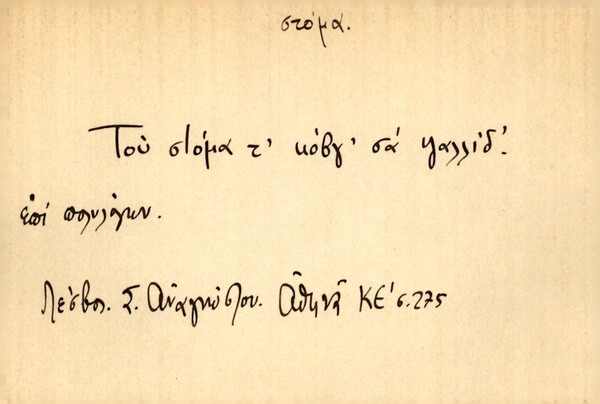 στόμα.
Τοὺ στόμα τ' κόβγ' σά ψαλλίδ'.
ἐπί πολυλόγων.
Λέσβος. Σ. Ἀναγνώστου. Ἀθηνᾶ ΚΕ' σ. 275